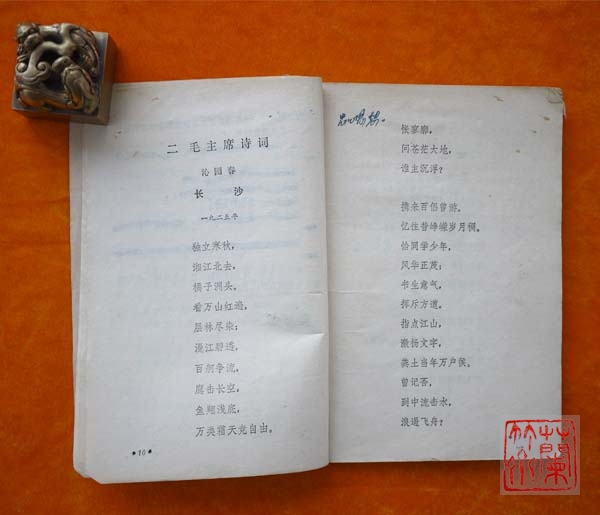 二 毛主席诗词
沁园春
长 沙
一九二五年
独立寒秋，
湘江北去，
橘子洲头。
看万山红遍，
层林尽染；
漫江碧透，
百舸争流。
鹰击长空，
鱼翔浅底，
万类霜天竞自由。
•10•
怅寥廓，
问苍茫大地，
谁主沉浮？
携来百侣曾游。
忆往昔峥嵘岁月稠。
恰同学少年，
风华正茂；
书生意气，
挥斥方遒。
指点江山，
激扬文字，
粪土当年万户侯。
曾记否，
到中流击水，
浪遏飞舟？